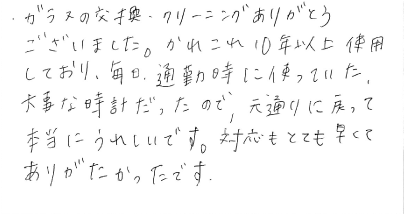 ・ガラスの交換・クリーニングありがとう
ございました。かれこれ10年以上使用
しており、毎日、通勤時に使っていた、
大事な時計だったので、元通りに戻って
本当にうれしいです。対応もとても早くて
ありがたかったです.